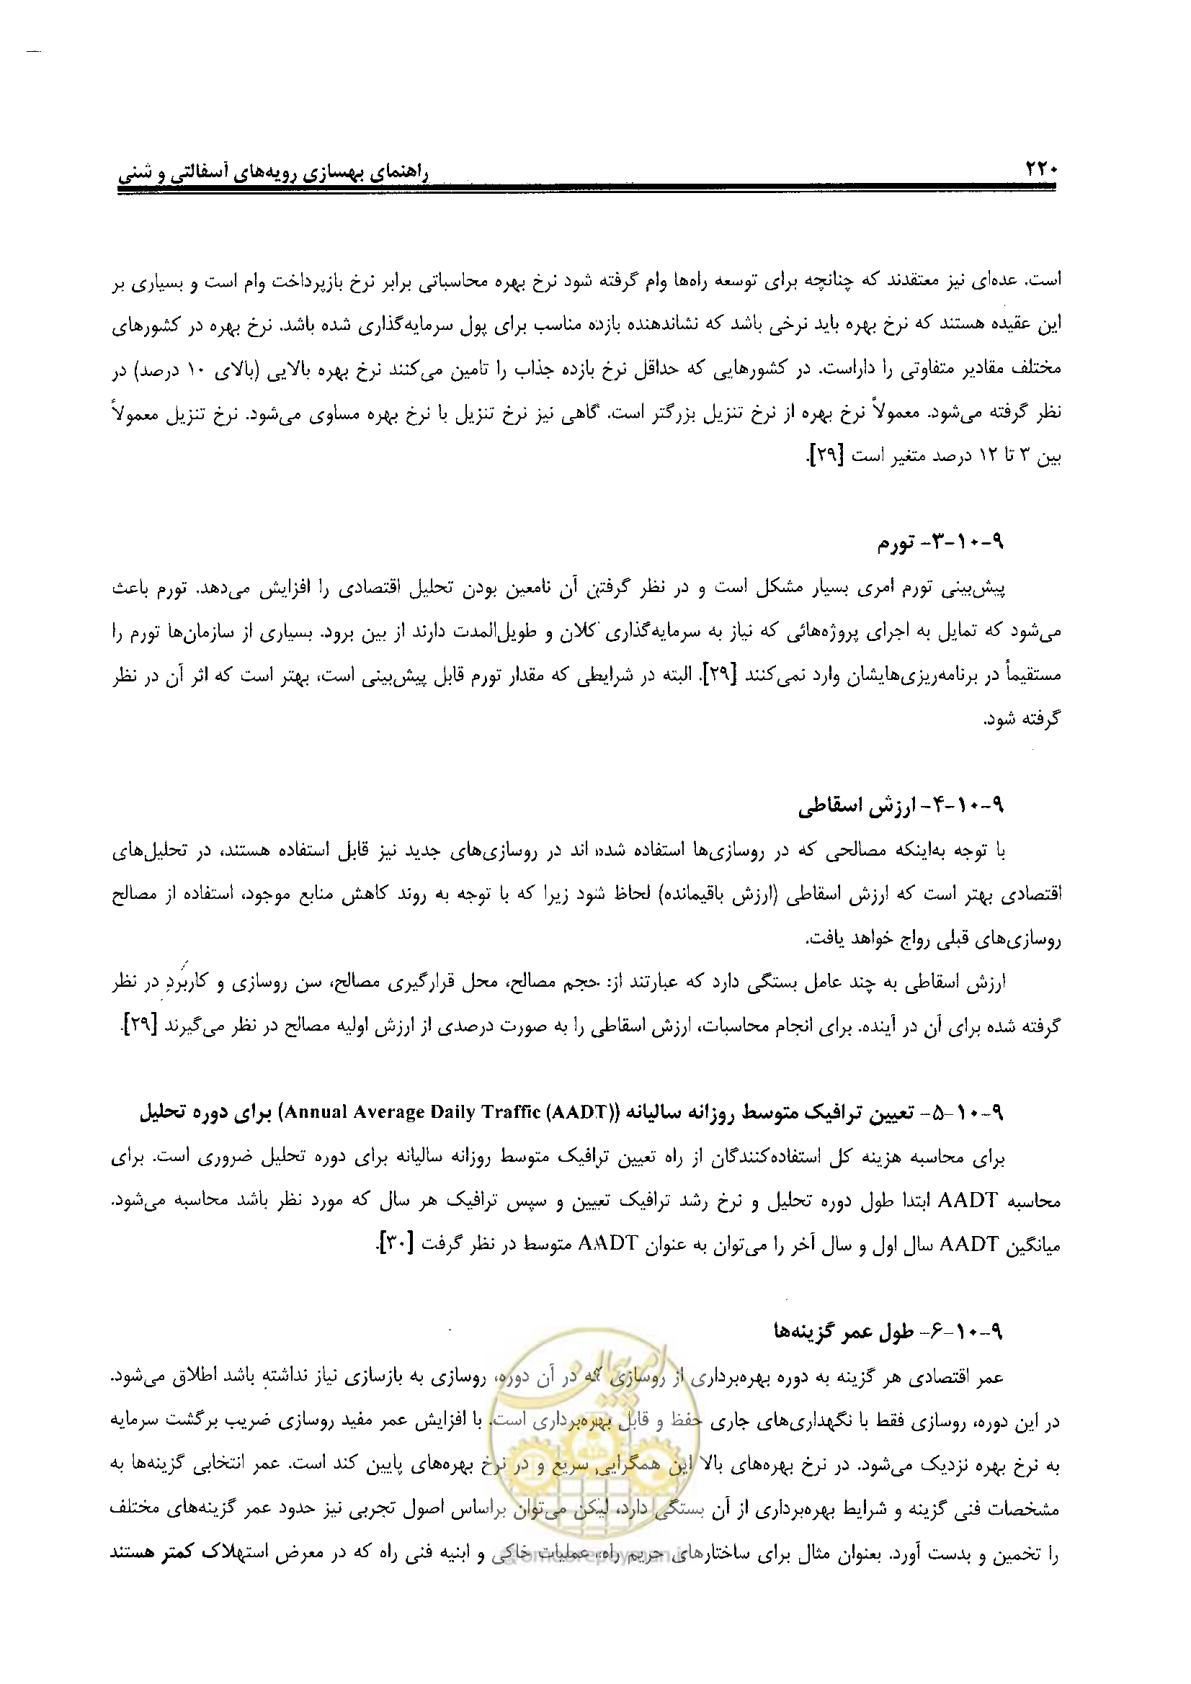 ۲۲۰
راهنمای بهسازی رویه‌های آسفالتی و شنی
است. عده‌ای نیز معتقدند که چنانچه برای توسعه راه‌ها وام گرفته شود نرخ بهره محاسباتی برابر نرخ بازپرداخت وام است و بسیاری بر
این عقیده هستند که نرخ بهره باید نرخی باشد که نشاندهنده بازده مناسب برای پول سرمایه‌گذاری شده باشد. نرخ بهره در کشورهای
مختلف مقادیر متفاوتی را داراست. در کشورهایی که حداقل نرخ بازده جذاب را تامین می‌کنند نرخ بهره بالایی (بالای ۱۰ درصد) در
نظر گرفته می‌شود. معمولاً نرخ بهره از نرخ تنزیل بزرگتر است. گاهی نیز نرخ تنزیل با نرخ بهره مساوی می‌شود. نرخ تنزیل معمولاً
بین ۳ تا ۱۲ درصد متغیر است [۲۹].
۹-۱۰-۳- تورم
پیش‌بینی تورم امری بسیار مشکل است و در نظر گرفتن آن نامعین بودن تحلیل اقتصادی را افزایش می‌دهد. تورم باعث
می‌شود که تمایل به اجرای پروژه‌هائی که نیاز به سرمایه‌گذاری کلان و طویل‌المدت دارند از بین برود. بسیاری از سازمان‌ها تورم را
مستقیماً در برنامه‌ریزی‌هایشان وارد نمی‌کنند [۲۹]. البته در شرایطی که مقدار تورم قابل پیش‌بینی است، بهتر است که اثر آن در نظر
گرفته شود.
۹-۱۰-۴- ارزش اسقاطی
با توجه به‌اینکه مصالحی که در روسازی‌ها استفاده شده اند در روسازی‌های جدید نیز قابل استفاده هستند، در تحلیل‌های
اقتصادی بهتر است که ارزش اسقاطی (ارزش باقیمانده) لحاظ شود زیرا که با توجه به روند کاهش منابع موجود، استفاده از مصالح
روسازی‌های قبلی رواج خواهد یافت.
ارزش اسقاطی به چند عامل بستگی دارد که عبارتند از: حجم مصالح، محل قرارگیری مصالح، سن روسازی و کاربرد در نظر
گرفته شده برای آن در آینده. برای انجام محاسبات، ارزش اسقاطی را به صورت درصدی از ارزش اولیه مصالح در نظر می‌گیرند [۲۹].
۹-۱۰-۵- تعیین ترافیک متوسط روزانه سالیانه (Annual Average Daily Traffic (AADT)) برای دوره تحلیل
برای محاسبه هزینه کل استفاده‌کنندگان از راه تعیین ترافیک متوسط روزانه سالیانه برای دوره تحلیل ضروری است. برای
محاسبه AADT ابتدا طول دوره تحلیل و نرخ رشد ترافیک تعیین و سپس ترافیک هر سال که مورد نظر باشد محاسبه می‌شود.
میانگین AADT سال اول و سال آخر را می‌توان به عنوان AADT متوسط در نظر گرفت [۳۰].
۹-۱۰-۶- طول عمر گزینه‌ها
عمر اقتصادی هر گزینه به دوره بهره‌برداری از روسازی که در آن دوره، روسازی به بازسازی نیاز نداشته باشد اطلاق می‌شود.
در این دوره، روسازی فقط با نگهداری‌های جاری حفظ و قابل بهره‌برداری است. با افزایش عمر مفید روسازی ضریب برگشت سرمایه
به نرخ بهره نزدیک می‌شود. در نرخ بهره‌های بالا این همگرایی سریع و در نرخ بهره‌های پایین کند است. عمر انتخابی گزینه‌ها به
مشخصات فنی گزینه و شرایط بهره‌برداری از آن بستگی دارد، لیکن می‌توان براساس اصول تجربی نیز حدود عمر گزینه‌های مختلف
را تخمین و بدست آورد. بعنوان مثال برای ساختارهای حریم راه، عملیات خاکی و ابنیه فنی راه که در معرض استهلاک کمتر هستند